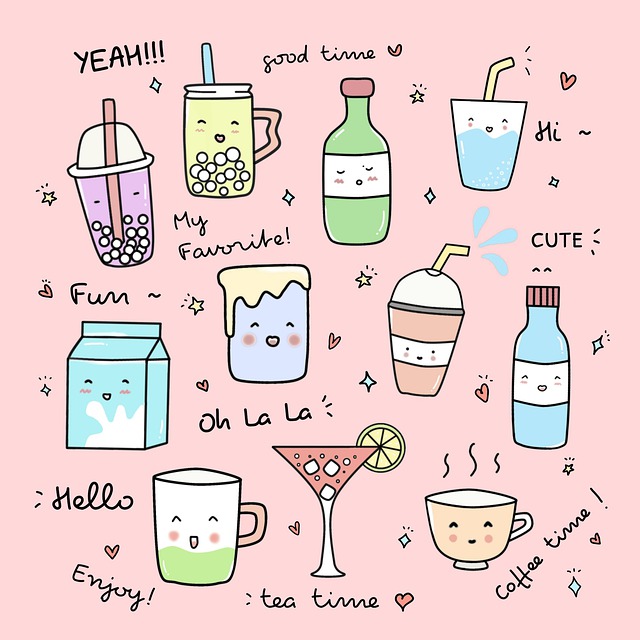 YEAH!!!
good time
Hi ~
My
Favorite!
CUTE
Fun ~
Oh La La
Hello
Enjoy!
tea time
Coffee time!